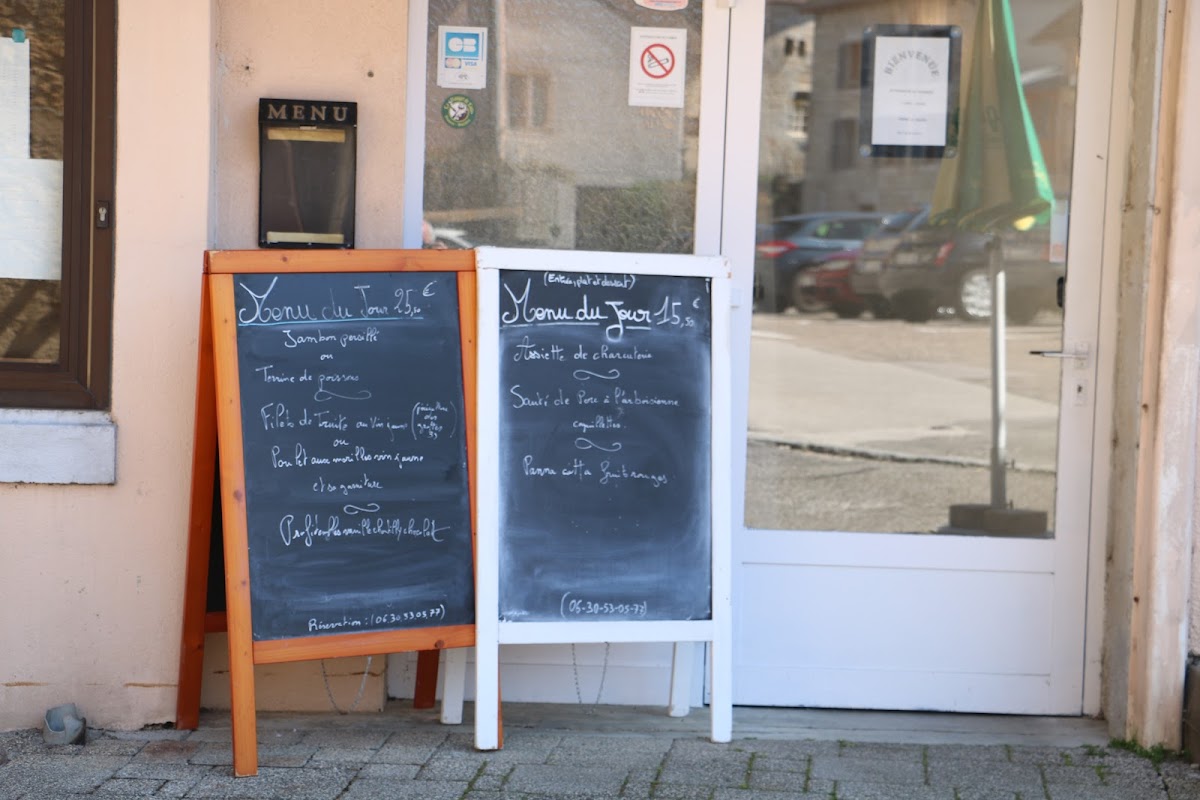 CB
VISA
MENU
BIENVENUE
Menu du Jour 25,50 €
Jambon persillé
ou
Terrine de poisson
Filets de Truite au Vin jaune
ou
Poulet aux morilles vin jaune
et sa garniture
Profiteroles vanille chantilly chocolat
Réservation : (06.30.53.05.77)
(Entrée, plat et dessert)
Menu du Jour 15,50 €
Assiette de charcuterie
Sauté de Porc à l'arboisienne
coquillettes
Panna cotta fruits rouges
(06-30-53-05-77)